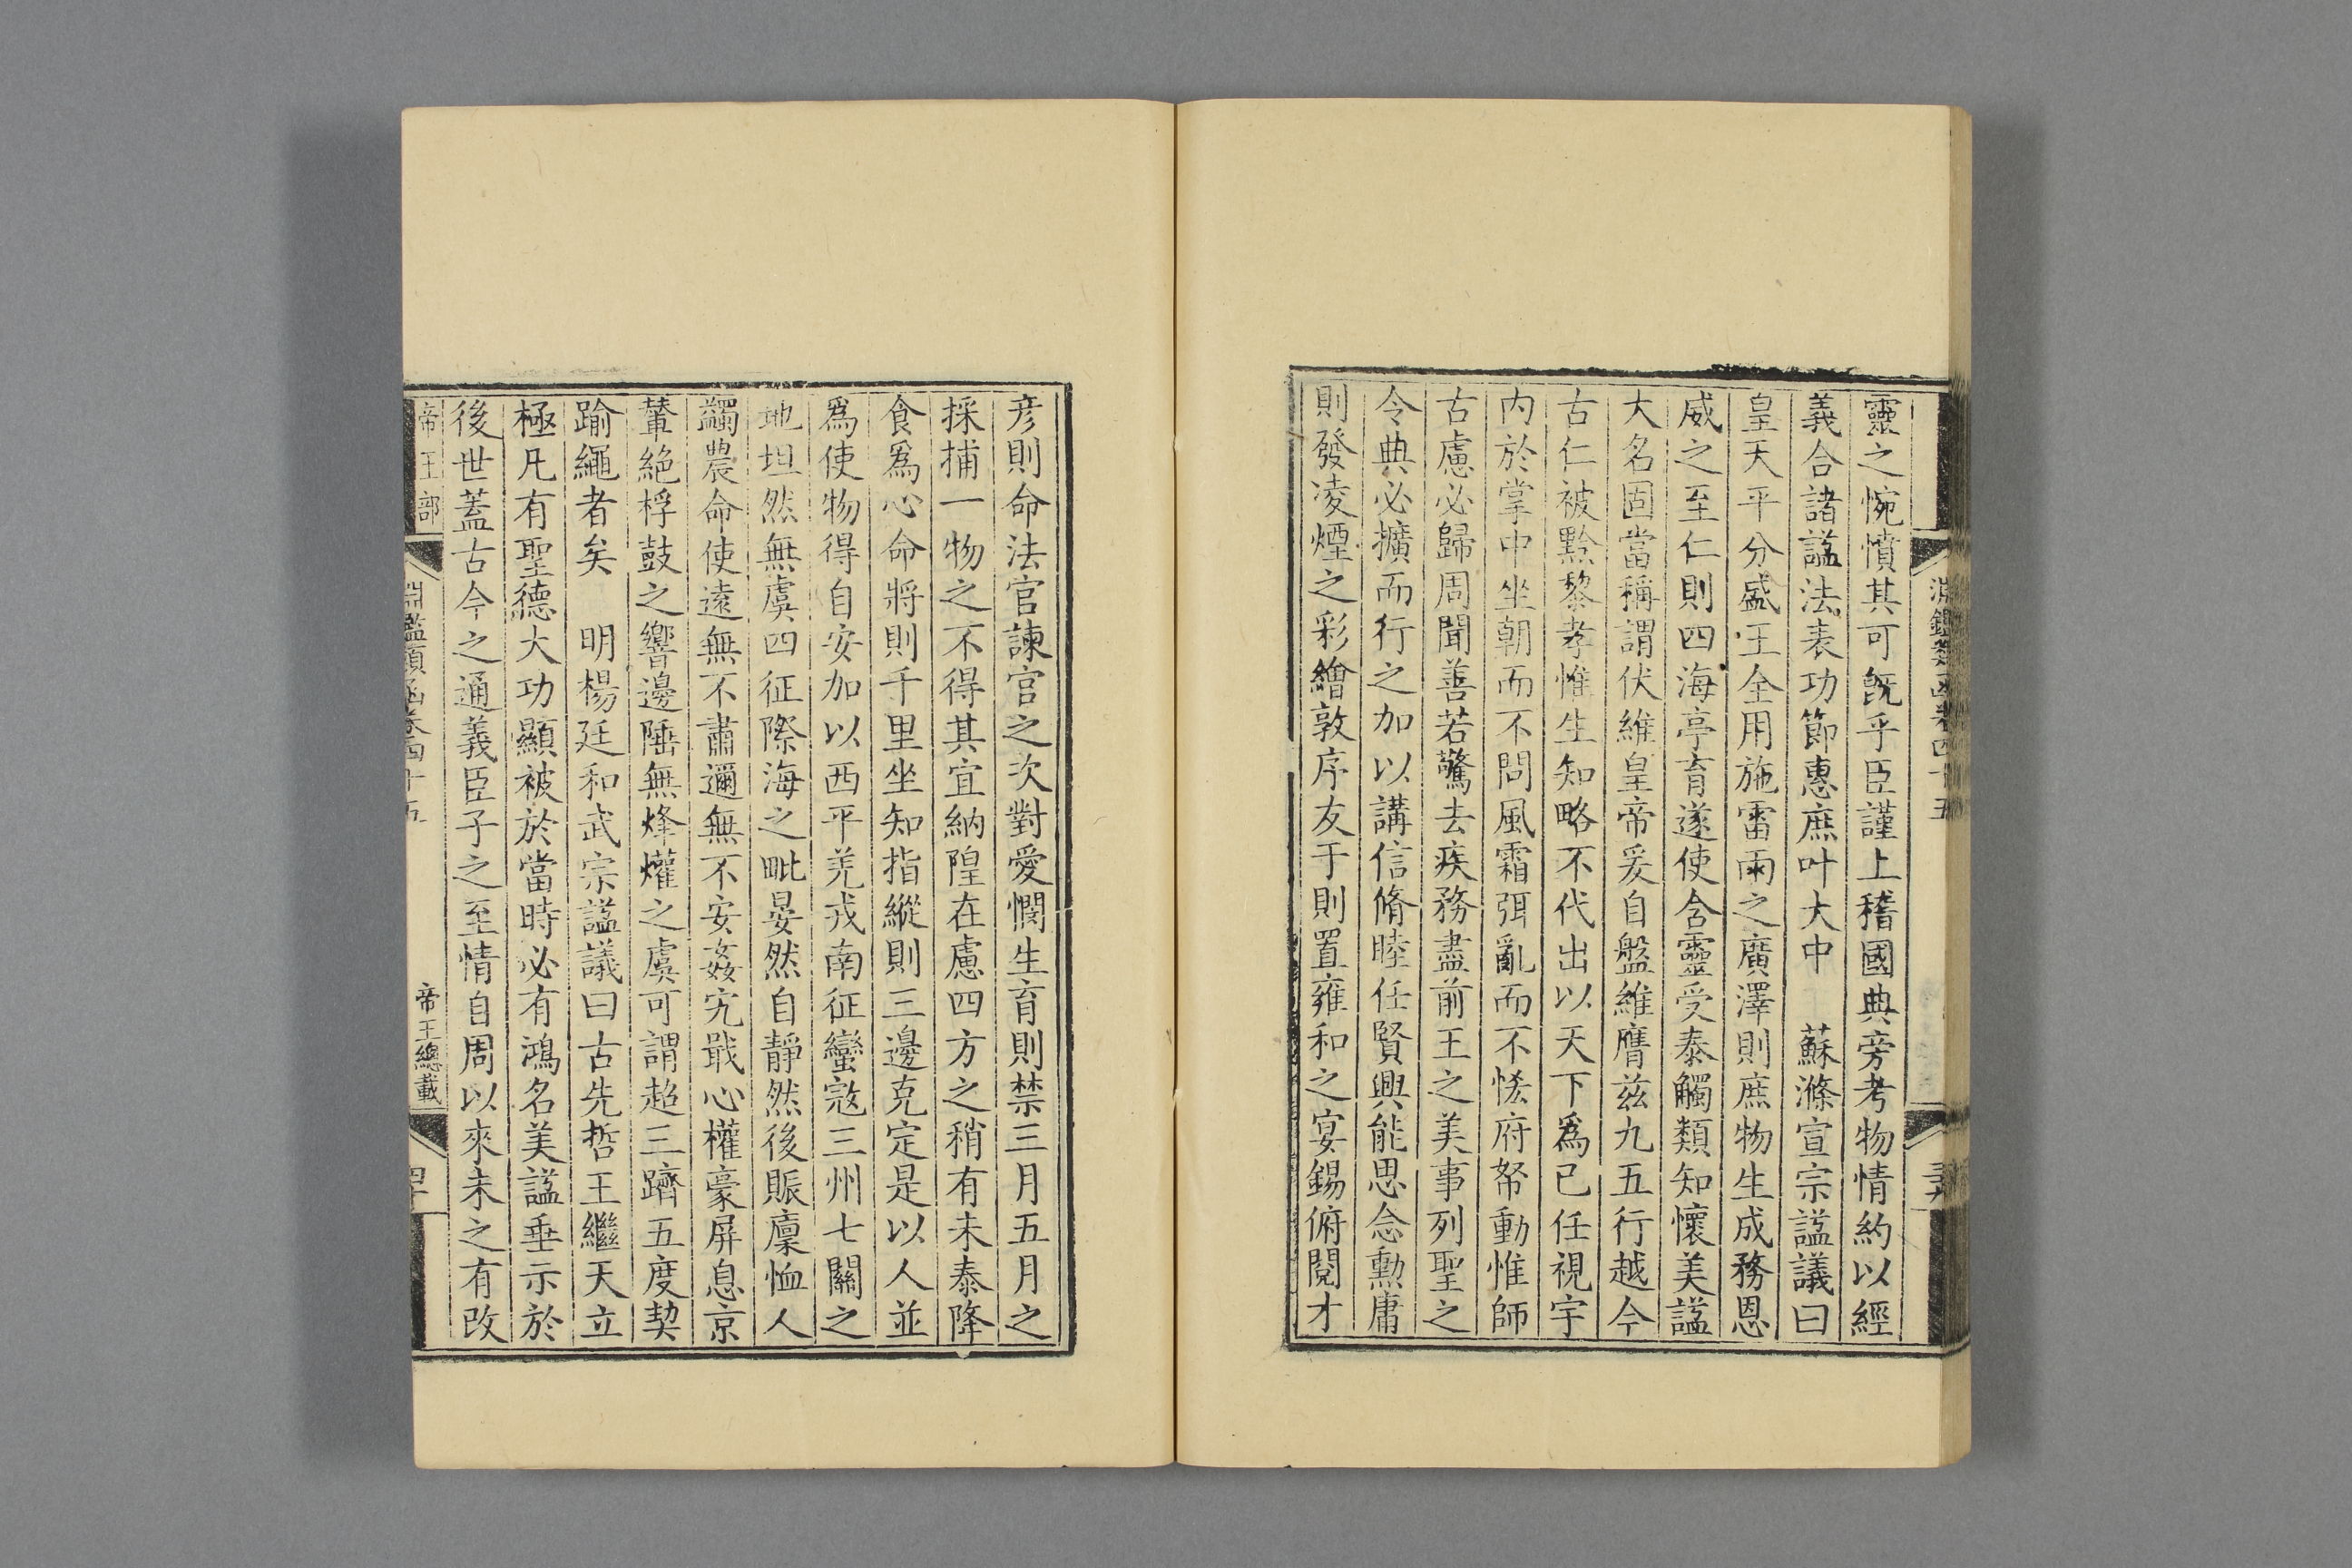 淵鑑類函卷四十五
靈之惋憤其可旣乎臣謹上稽國典旁考物情約以經
義合諸諡法表功節惠庶叶大中　蘇滌宣宗諡議曰
皇天平分盛王全用施雷雨之廣澤則庶物生成務恩
威之至仁則四海亭育遂使含靈受泰觸類知懷美諡
大名固當稱謂伏維皇帝爰自盤維膺茲九五行越今
古仁被黔黎孝惟生知略不代出以天下爲已任視宇
内於掌中坐朝而不問風霜弭亂而不恡府帑動惟師
古慮必歸周聞善若驚去疾務盡前王之美事列聖之
令典必擴而行之加以講信脩睦任賢興能思念勲庸
則發凌煙之彩繪敦序友于則置雍和之宴錫俯閱才
彦則命法官諫官之次對愛憫生育則禁三月五月之
採捕一物之不得其宜納隍在慮四方之稍有未泰降
食爲心命將則千里坐知指縱則三邊克定是以人並
爲使物得自安加以西平羌戎南征蠻寇三州七關之
地坦然無虞四征際海之毗晏然自靜然後賑廩恤人
蠲農命使遠無不肅邇無不安姦宄戢心權豪屏息京
輦絶桴鼓之響邊陲無烽爟之虞可謂超三躋五度契
踰繩者矣　明楊廷和武宗諡議曰古先哲王繼天立
極凡有聖德大功顯被於當時必有鴻名美諡垂示於
後世蓋古今之通義臣子之至情自周以來未之有改
帝王部
淵鑑類函卷四十五
帝王總載
四十